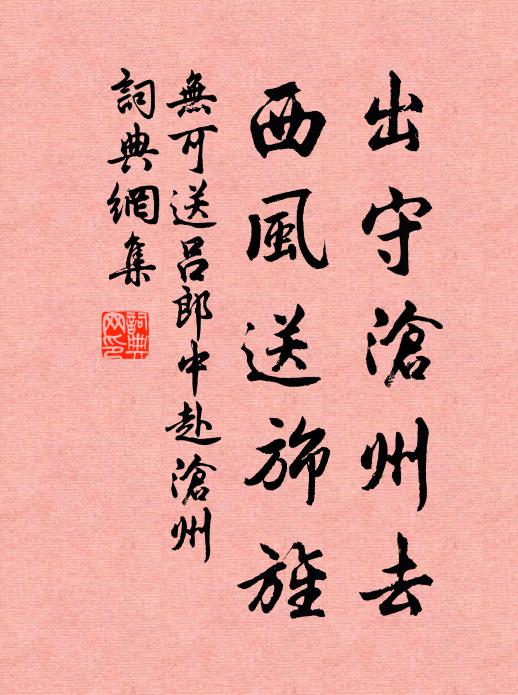 出守滄州去
西風送旆旌
無可送呂郎中赴滄州
詞典網集
詞典網印